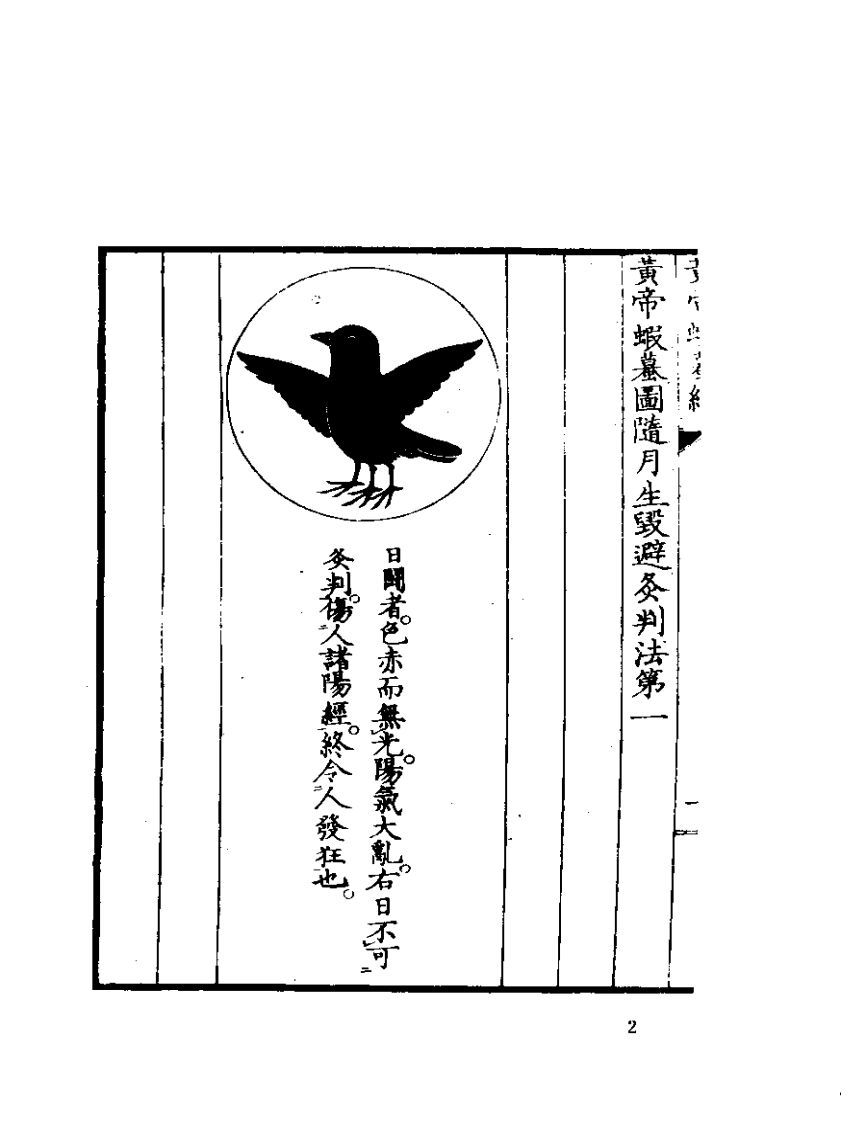 黃帝蝦蟇經
一
黃帝蝦蟇圖隨月生毀避灸判法第一
日鬭者。色赤而無光。陽氣大亂。右日不可
灸判。傷人諸陽經。終令人發狂也。
2